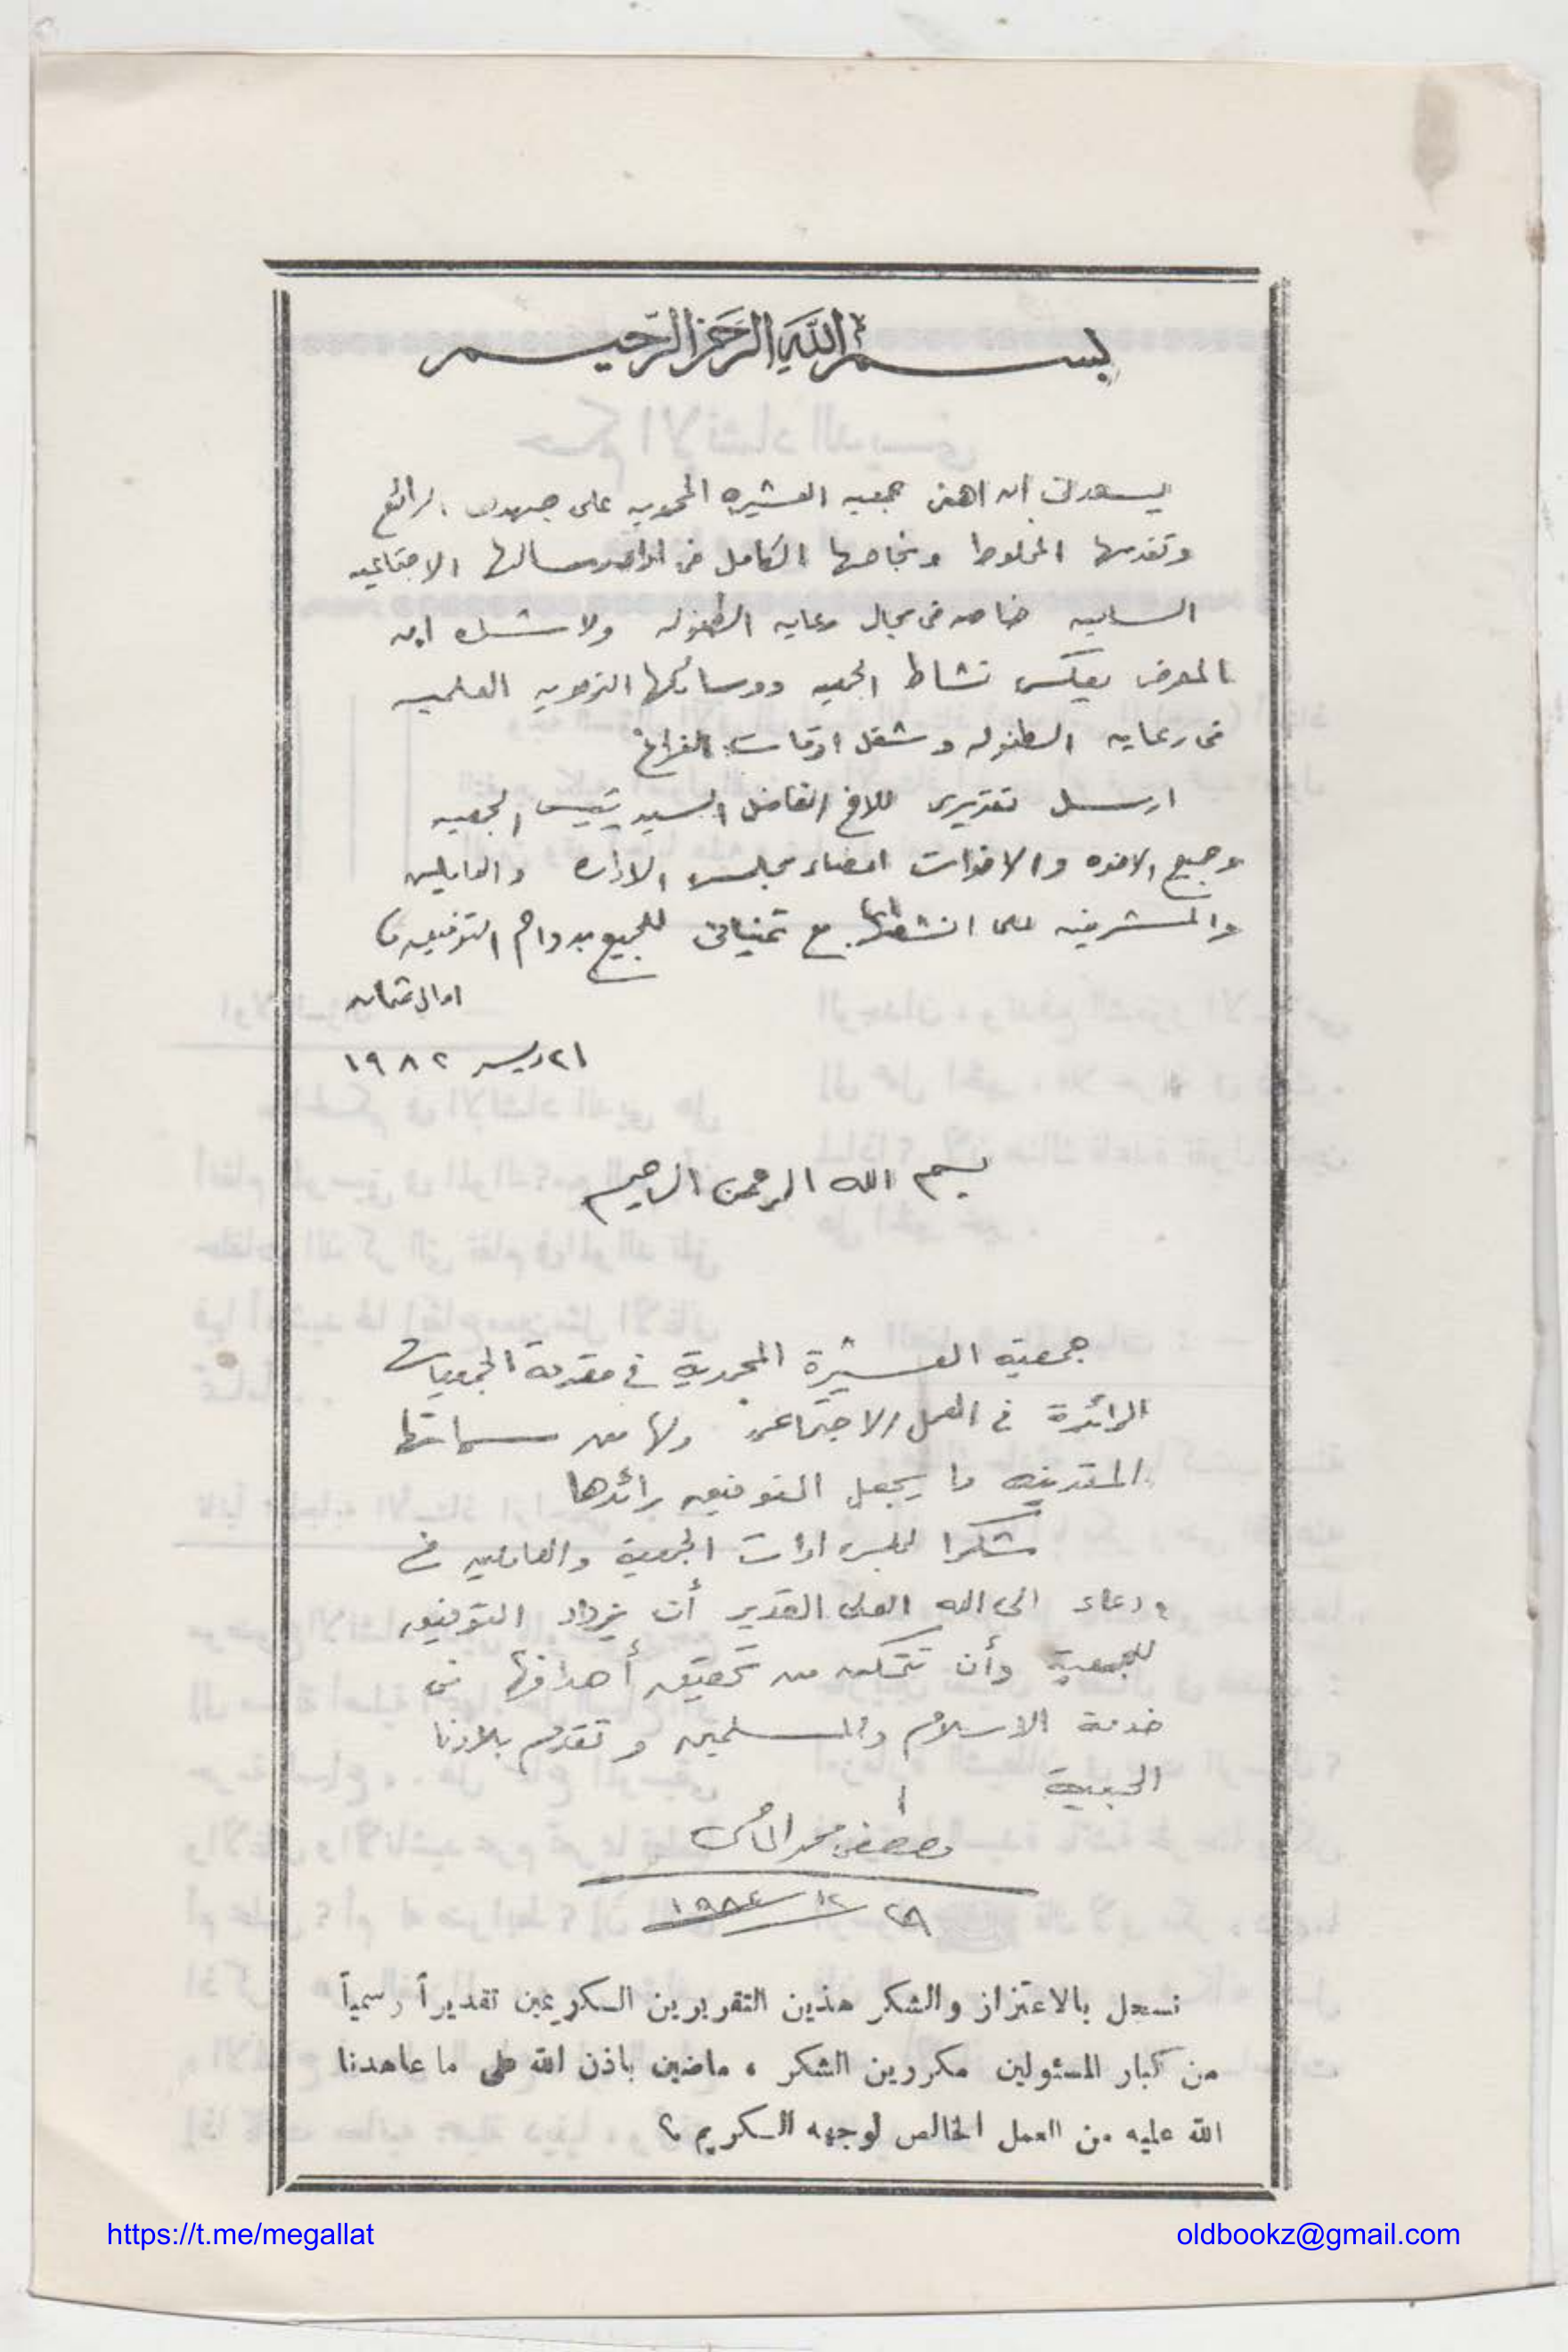 بسم الله الرحمن الرحيم
يسعدنى ان اهنئ جمعيه العشيره المحمديه على جهودها الرائع
وتقدمها الملحوظ ونجاحها الكامل فى اداء رسالتها الاجتماعيه
الساميه خاصه فى مجال رعايه الطفوله ولا شك ان
المعرض يعكس نشاط الجمعيه ووسائلها التربويه العلميه
فى رعايه الطفوله وشغل اوقات الفراغ
ارسل تقديرى للاخ الفاضل السيد رئيس الجمعيه
وجميع الاخوه والاخوات اعضاء مجلس الاداره والعاملين
والمشرفين على انشطتها مع تمنياتى للجميع بدوام التوفيق
امال عثمان
٢١ ديسمبر ١٩٨٢
بسم الله الرحمن الرحيم
جمعية العشيرة المحمدية في مقدمة الجمعيات
الرائدة في العمل الاجتماعى ولها من سماتها
ما يجعل التوفيق رائدها
شكرا لمجلس ادارة الجمعية والعاملين
ودعاء الى الله العلى القدير أن يزداد التوفيق
للجمعية وأن تتمكن من تحقيق أهدافها فى
خدمة الاسلام والمسلمين وتقدم بلادنا
الحبيبة
مصطفى محمد
نسجل بالاعتزاز والشكر هذين التقريرين الكريمين تقديراً رسمياً
من كبار المسئولين مكررين الشكر ، ماضين باذن الله على ما عاهدنا
الله عليه من العمل الخالص لوجهه الكريم ؟
https://t.me/megallat
oldbookz@gmail.com